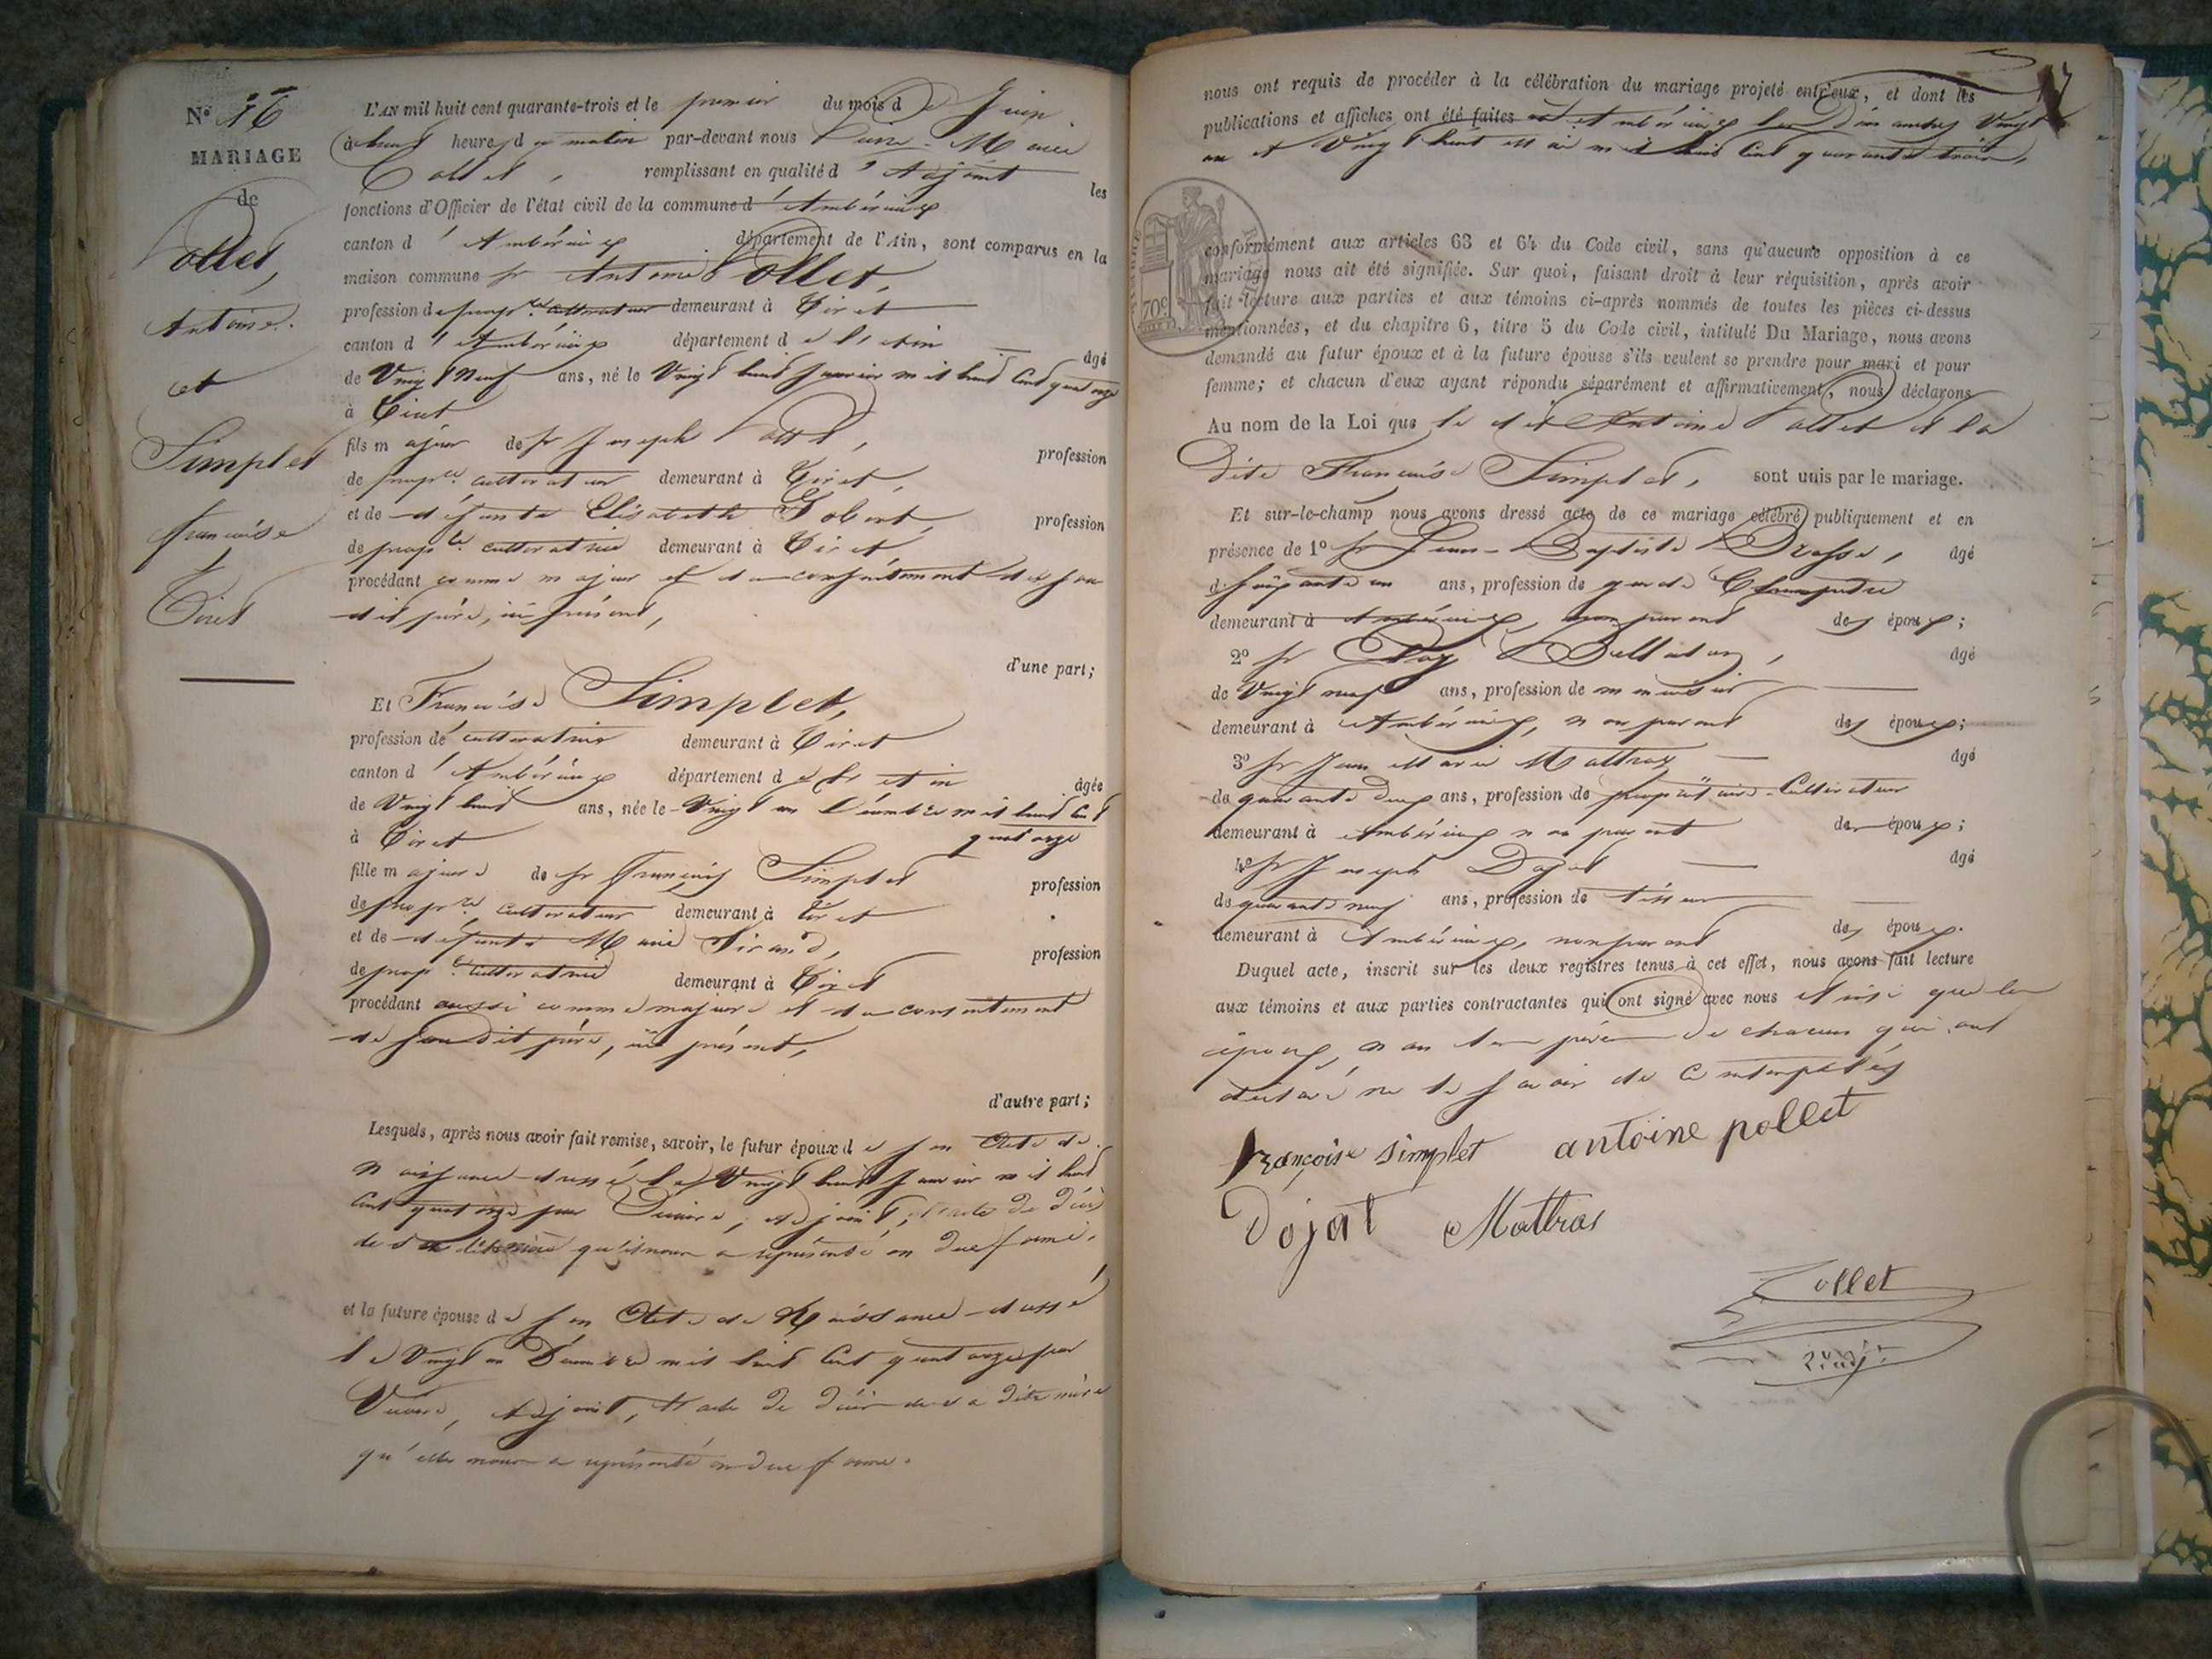 N° 16
MARIAGE
de
Pollet,
Antoine.
et
Simplet
françoise
Tiret
L'AN mil huit cent quarante-trois et le premier du mois de Juin
à huit heures du matin par-devant nous Pierre-Marie
Collet, remplissant en qualité d'Adjoint les
fonctions d'Officier de l'état civil de la commune d'Ambérieux
canton d'Ambérieux département de l'Ain, sont comparus en la
maison commune sr Antoine Pollet,
profession de propre cultivateur demeurant à Tiret
canton d'Ambérieux département de l'Ain âgé
de Vingt Neuf ans, né le Vingt huit Janvier mil huit Cent quatorze
à Tiret
fils majeur de sr Joseph Pollet, profession
de propre cultivateur demeurant à Tiret,
et de défunte Elisabeth Gobert, profession
de propre cultivatrice demeurant à Tiret,
procédant comme majeur et du consentement de son
dit père, ici présent,
d'une part;
Et Françoise Simplet,
profession de cultivatrice demeurant à Tiret
canton d'Ambérieux département de l'Ain âgée
de Vingt huit ans, née le Vingt un Décembre mil huit Cent
à Tiret quatorze
fille majeure de sr François Simplet profession
de propre cultivateur demeurant à Tiret
et de défunte Marie Tirand, profession
de propre cultivatrice demeurant à Tiret
procédant aussi comme majeure et du consentement
de son dit père, ici présent,
d'autre part;
Lesquels, après nous avoir fait remise, savoir, le futur époux de son Acte de
naissance dressé le Vingt huit Janvier mil huit
Cent quatorze par adjoint, et l'acte de décès
de sa dite mère qu'il nous a représenté en due forme,
et la future épouse de son Acte de Naissance dressé
le Vingt un Décembre mil huit Cent quatorze par
Adjoint, et l'acte de décès de sa dite mère
qu'elle nous a représenté en due forme.
nous ont requis de procéder à la célébration du mariage projeté entr'eux, et dont les
publications et affiches ont été faites à Ambérieux les Dimanches Vingt
un et Vingt huit mai mil huit Cent quarante trois,
conformément aux articles 63 et 64 du Code civil, sans qu'aucune opposition à ce
mariage nous ait été signifiée. Sur quoi, faisant droit à leur réquisition, après avoir
fait lecture aux parties et aux témoins ci-après nommés de toutes les pièces ci-dessus
mentionnées, et du chapitre 6, titre 5 du Code civil, intitulé Du Mariage, nous avons
demandé au futur époux et à la future épouse s'ils veulent se prendre pour mari et pour
femme; et chacun d'eux ayant répondu séparément et affirmativement, nous déclarons
70c
Au nom de la Loi que le dit Antoine Pollet et la
Dite Françoise Simplet, sont unis par le mariage.
Et sur-le-champ nous avons dressé acte de ce mariage célébré publiquement et en
présence de 1° sr Jean-Baptiste âgé
de soixante un ans, profession de garde Champêtre
demeurant à Ambérieux, non parent des époux;
2° sr âgé
de Vingt neuf ans, profession de menuisier
demeurant à Ambérieux, non parent des époux;
3° sr Jean Marie Mathray âgé
de quarante deux ans, profession de propriétaire-Cultivateur
demeurant à Ambérieux non parent des époux;
4° sr Joseph Dojat âgé
de quarante neuf ans, profession de tisseur
demeurant à Ambérieux, non parent des époux.
Duquel acte, inscrit sur les deux registres tenus à cet effet, nous avons fait lecture
aux témoins et aux parties contractantes qui ont signé avec nous et ainsi que les
époux, non les pères de chacun qui ont
déclaré ne le savoir de ce interpellés
françoise simplet antoine pollet
Dojat Mathras
Collet
adjt